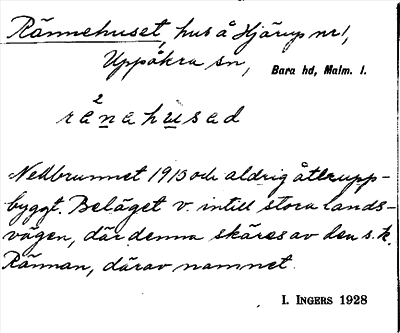 Rännehuset, hus å Hjärup nr 1,
Uppåkra sn, Bara hd, Malm. l.
2
ränahusad
Nedbrunnet 1915 och aldrig återupp-
byggt. Beläget v. intill stora lands-
vägen, där denna skäres av den s.k.
Rännan, därav namnet.
I. INGERS 1928